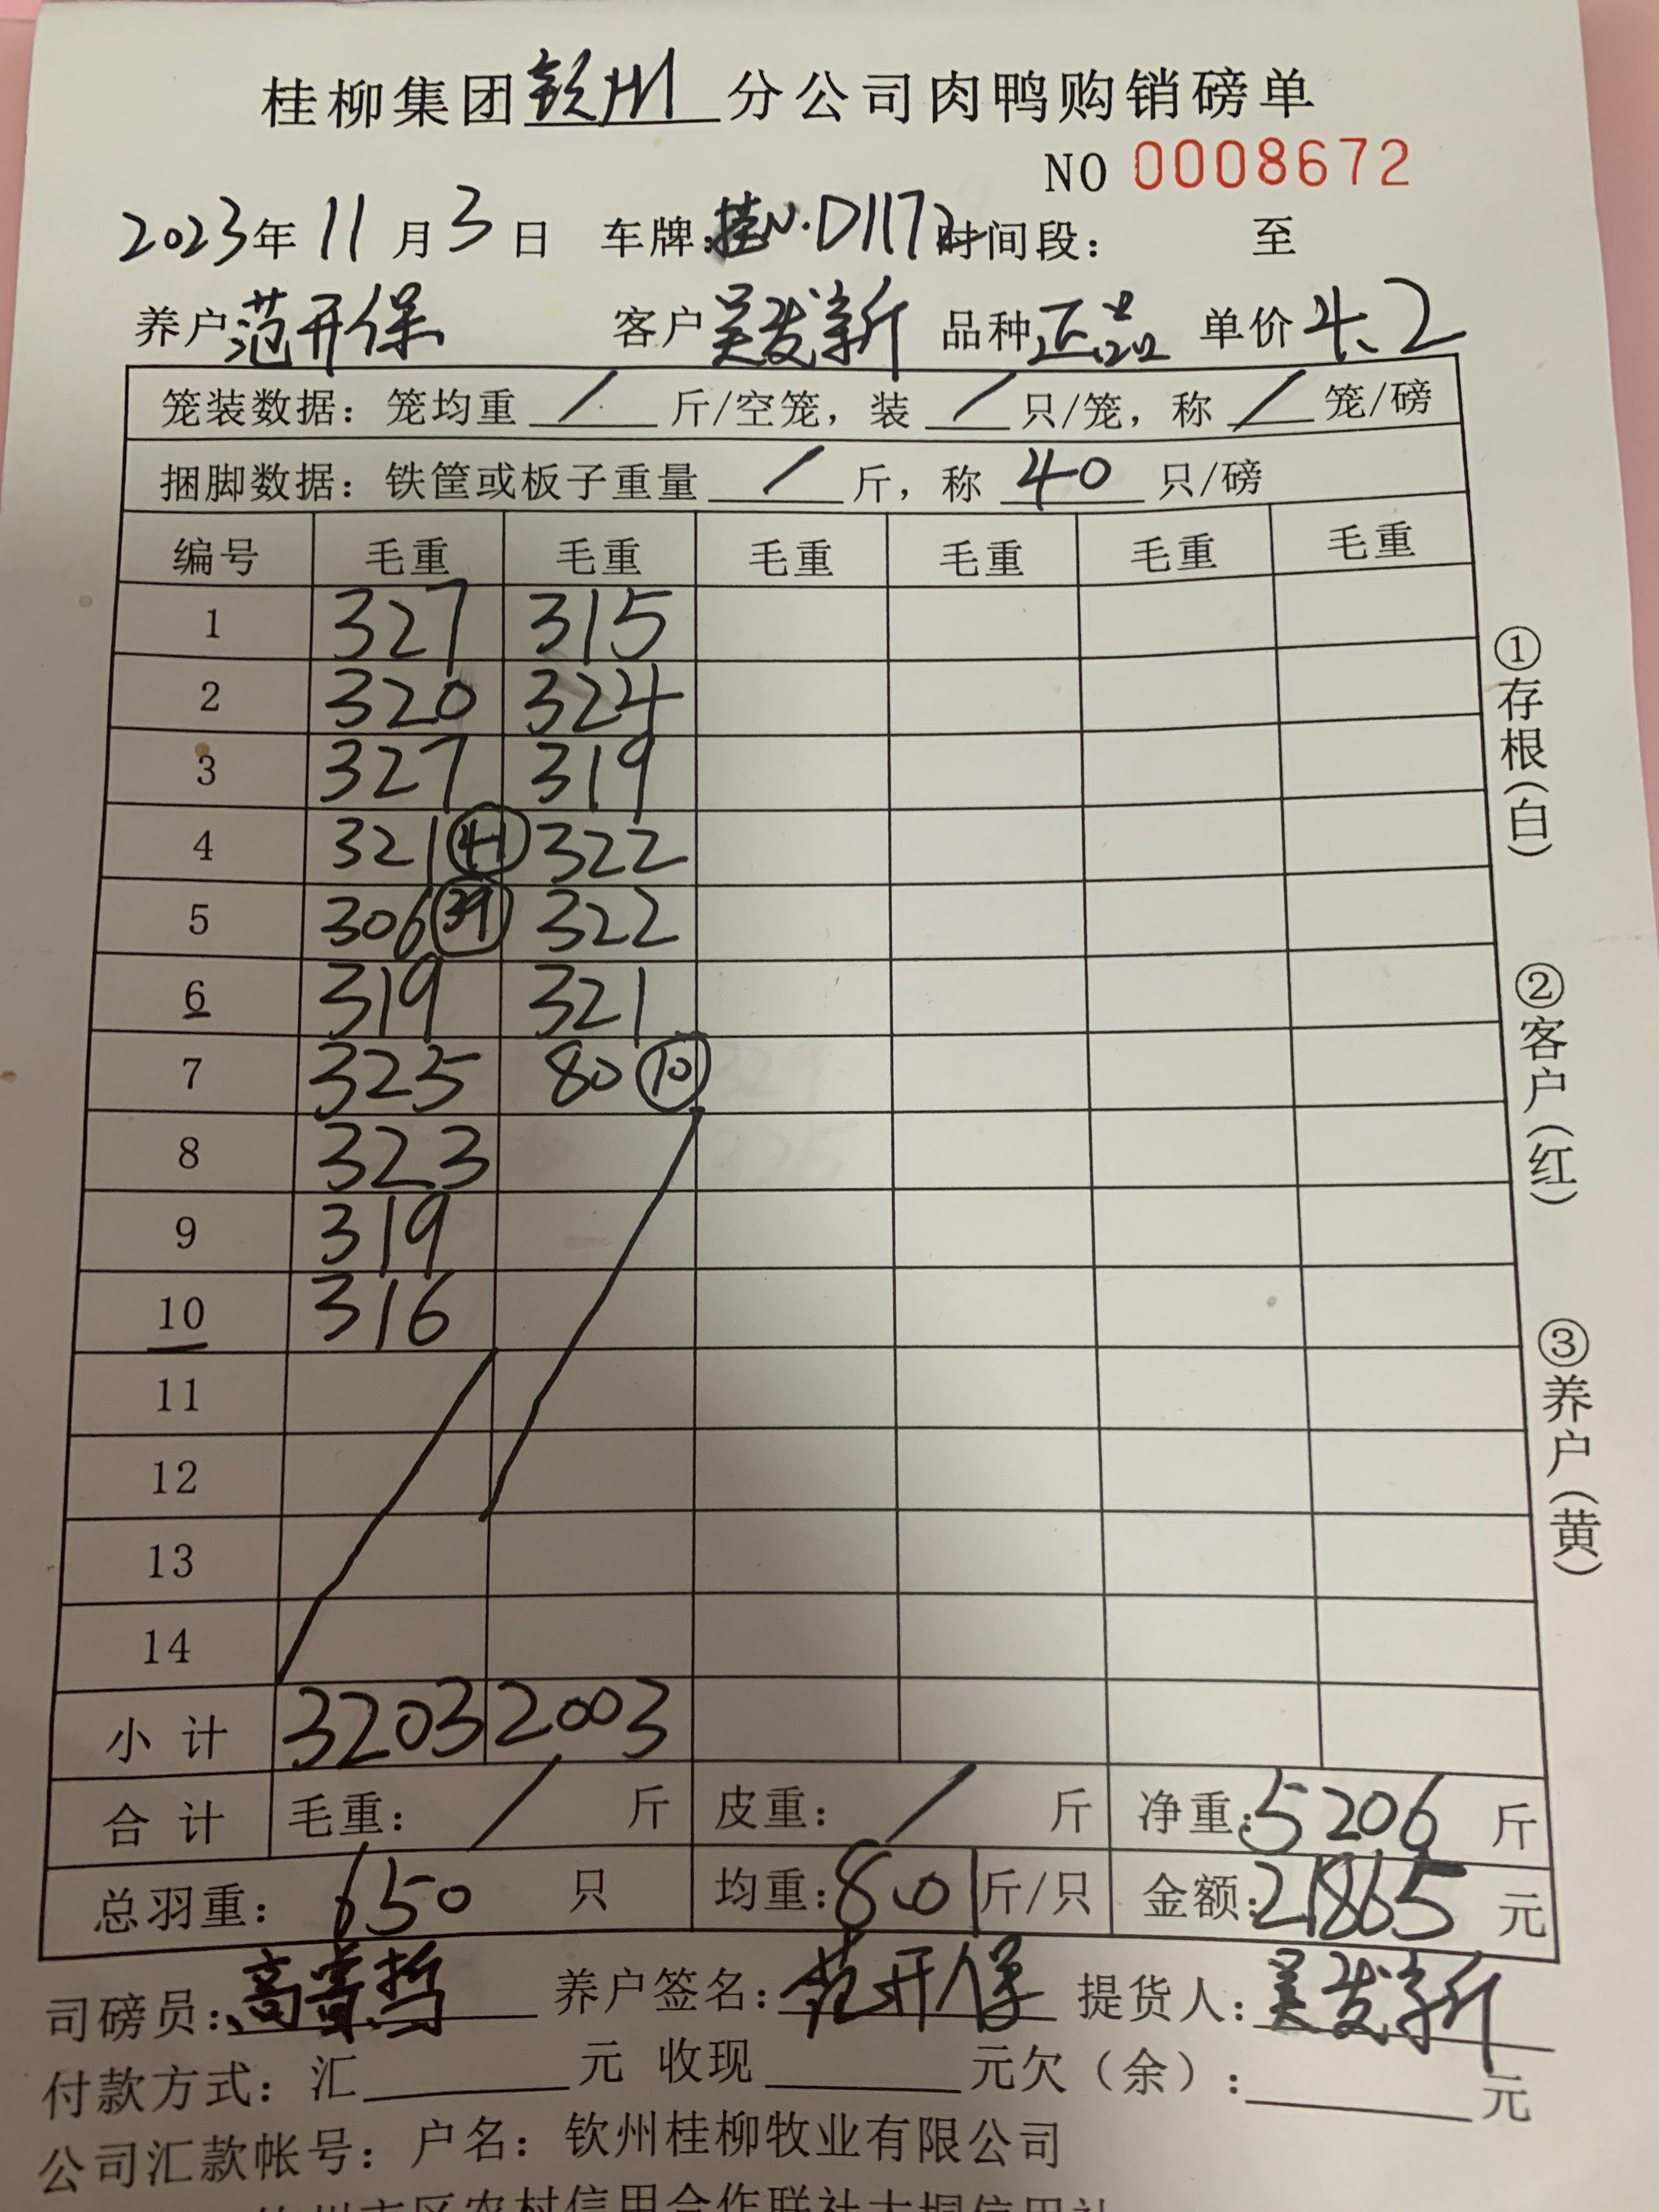 桂柳集团钦州分公司肉鸭购销磅单
NO 0008672
2023年 11月3日 车牌:桂N·D1172 时间段: 至
养户范开保 客户吴发新 品种正品 单价4.2
笼装数据: 笼均重 / 斤/空笼, 装 / 只/笼, 称 / 笼/磅
捆脚数据: 铁筐或板子重量 / 斤, 称 40 只/磅
编号 毛重 毛重 毛重 毛重 毛重 毛重
1 327 315
2 320 324
3 327 319
4 321 41 322
5 306 39 322
6 319 321
7 325 80 10
8 323
9 319
10 316
11
12
13
14
小 计 3203 2003
合 计 毛重: / 斤 皮重: / 斤 净重:5206 斤
总羽重: 650 只 均重:8.01斤/只 金额:21865 元
司磅员:高 哲 养户签名:范开保 提货人:吴发新
付款方式: 汇 元 收现 元欠(余): 元
公司汇款帐号: 户名: 钦州桂柳牧业有限公司
①存根(白)
②客户(红)
③养户(黄)